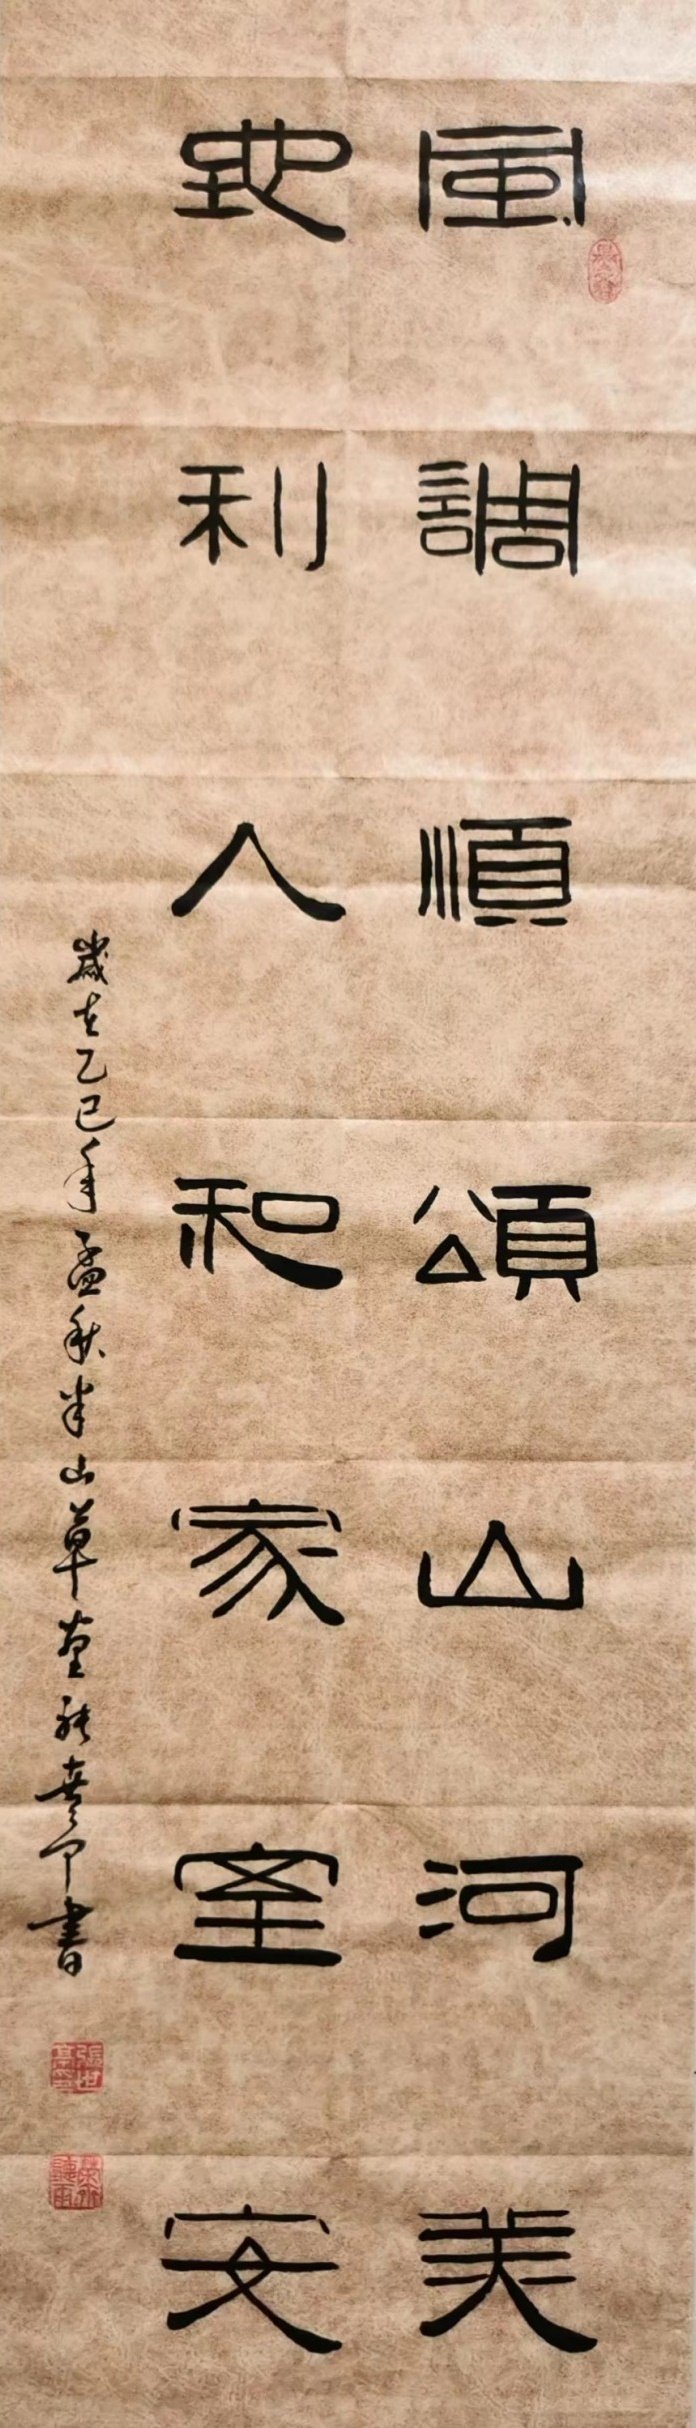 風調順頌山河美
地利人和家室安
歲在乙巳年孟秋半山草堂張世亭書
張世